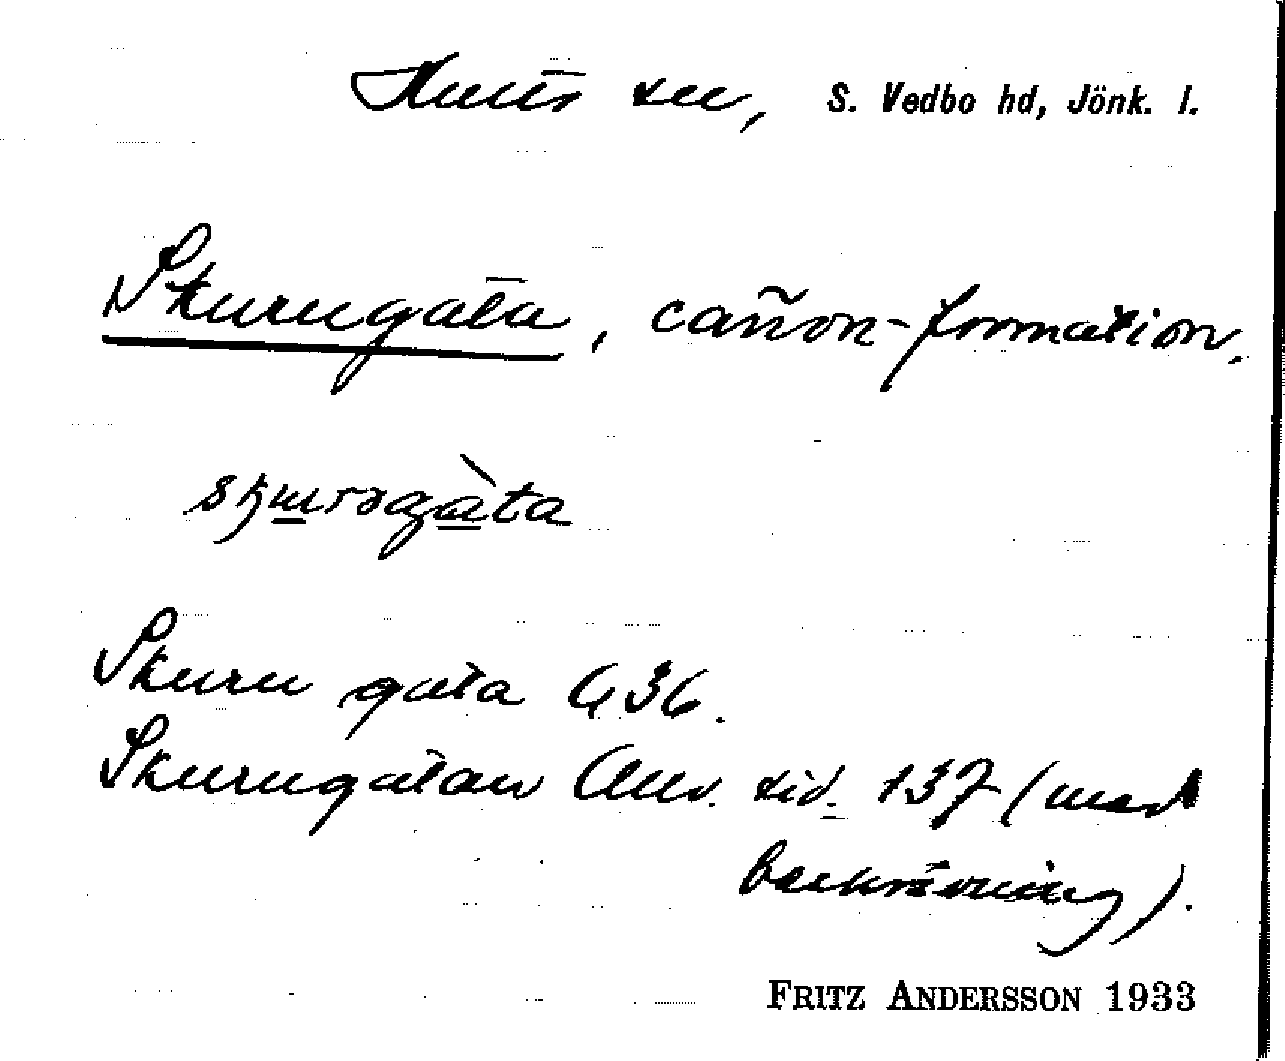 S. Vedbo hd, Jönk. l.
Skurugata, cañon-formation.
Skuru gata G 36.
Skurugatan Allv. sid. 137 (med
beskrivning).
FRITZ ANDERSSON 1933